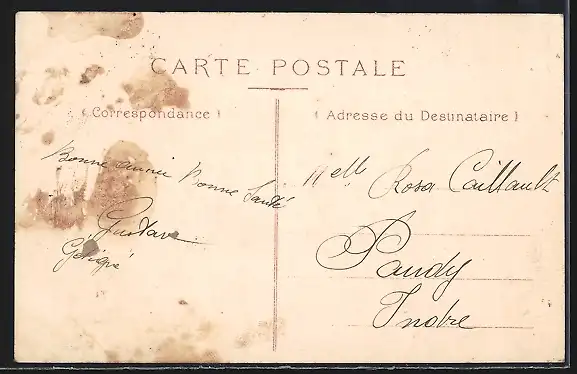 CARTE POSTALE
( Correspondance )
( Adresse du Destinataire )
Bonne année Bonne Santé
Gustave
Melle Rosa Caillault
Paudy
Indre